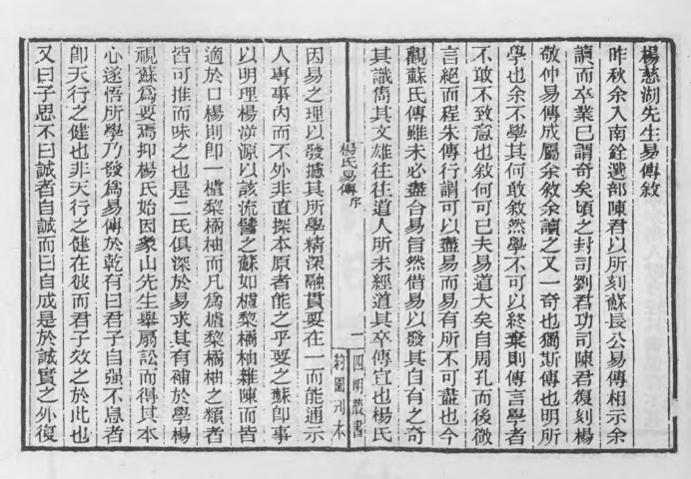 楊慈湖先生易傳敘
昨秋余入南銓選部陳君以所刻蘇長公易傳相示余
讀而卒業巳謂奇矣頃之封司劉君功司陳君復刻楊
敬仲易傳成屬余敘余讀之又一奇也獨斯傳也明所
學也余不學其何敢敘然學不可以終棄則傳言學者
不敢不致意也敘何可已夫易道大矣自周孔而後微
言絕而程朱傳行謂可以盡易而易有所不可盡也今
觀蘇氏傳雖未必盡合易旨然借易以發其自有之奇
其識雋其文雄往往道人所未經道其卒傳宜也楊氏
楊氏易傳 序
一
四明叢書
約園刊本
因易之理以發攄其所學精深融貫要在一而能通示
人專事內而不外非直探本原者能之乎要之蘇卽事
以明理楊遡源以該流譬之蘇如樝棃橘柚雜陳而皆
適於口楊則卽一樝棃橘柚而凡爲樝棃橘柚之類者
皆可推而味之也是二氏俱深於易求其有補於學楊
視蘇爲要焉抑楊氏始因象山先生舉扇訟而得其本
心遂悟所學乃發爲易傳於乾有曰君子自強不息者
卽天行之健也非天行之健在彼而君子效之於此也
又曰子思不曰誠者自誠而曰自成是於誠實之外復